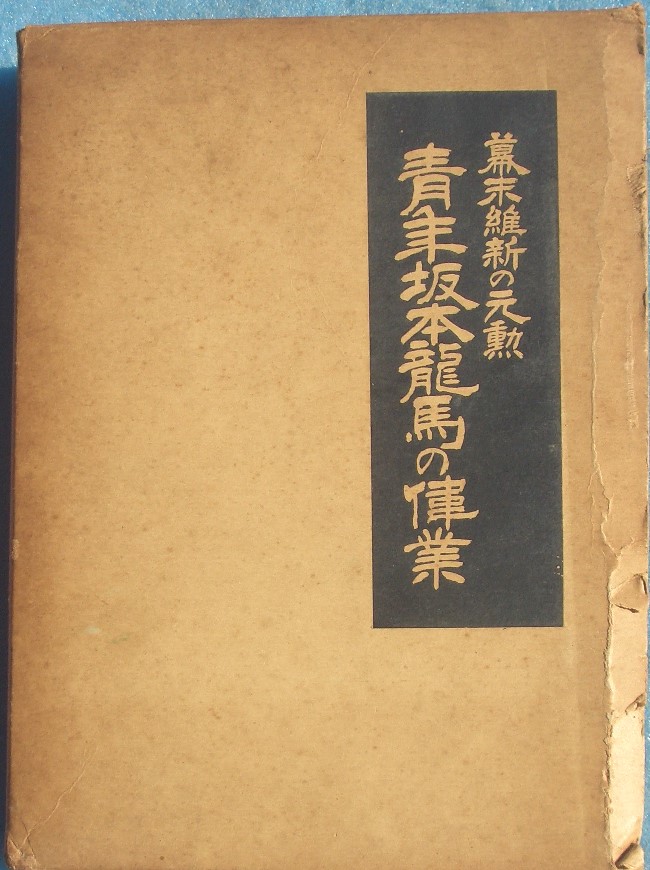 幕末維新の元勲
青年坂本龍馬の偉業